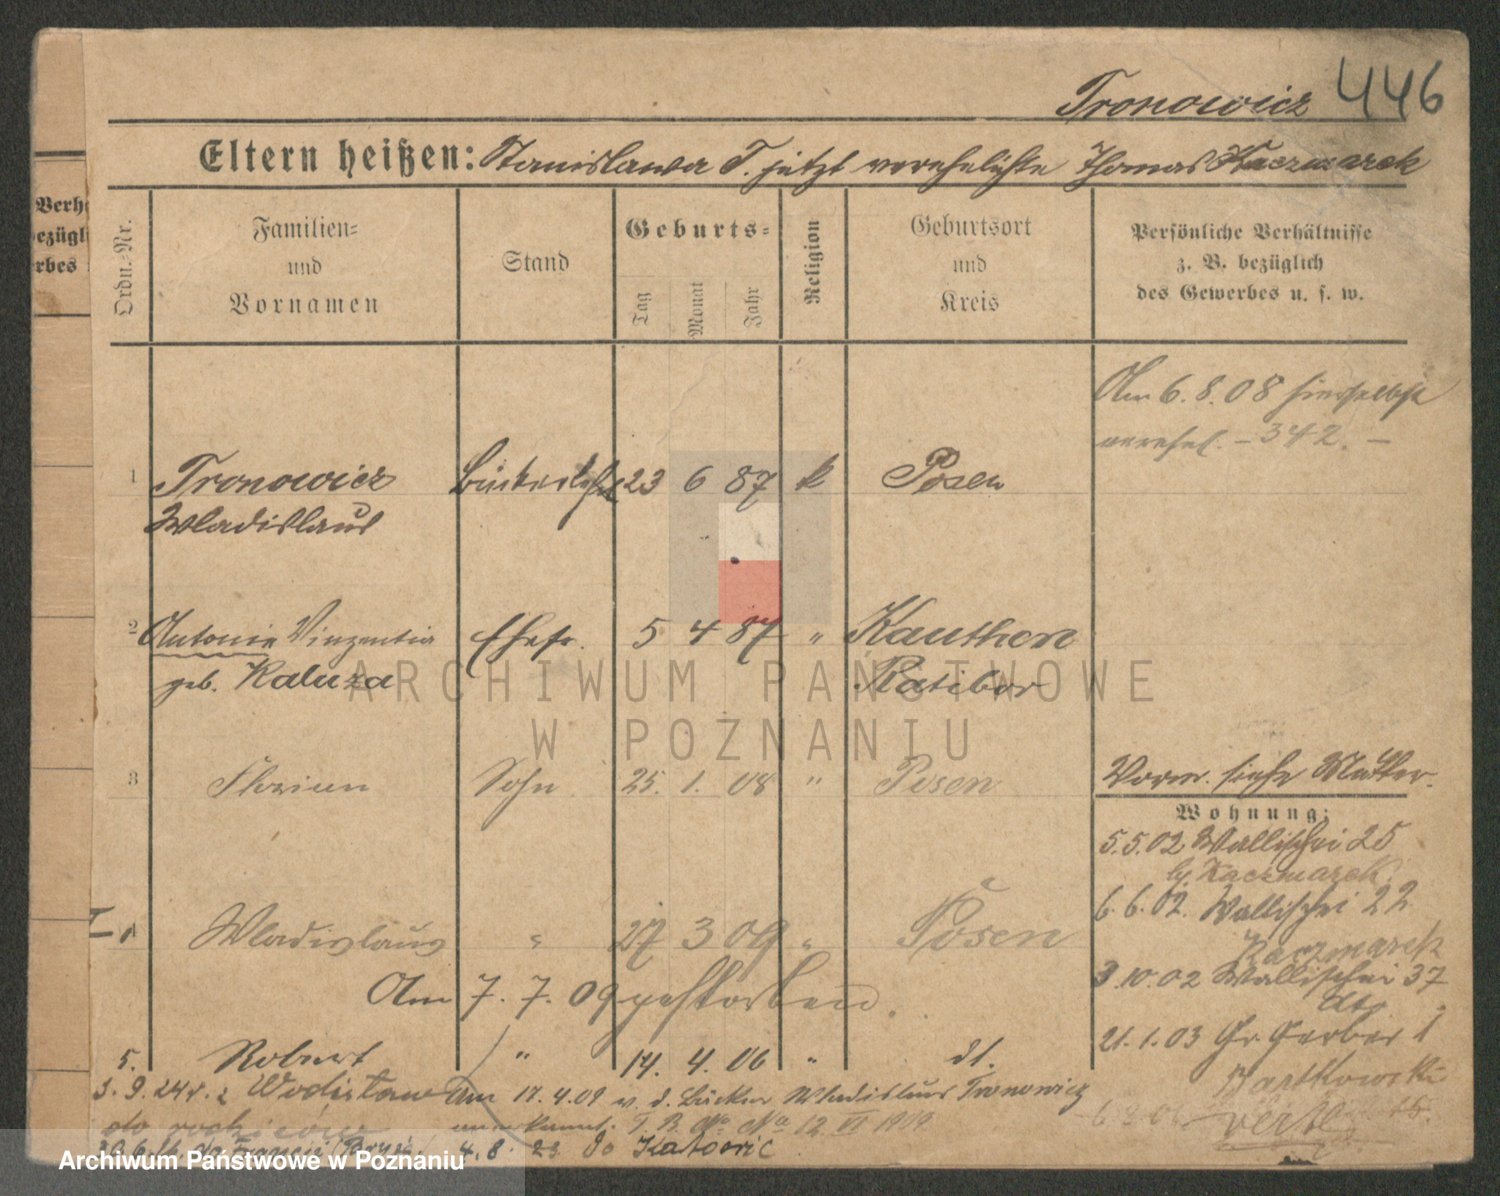 Tronowicz 446
Eltern heißen: Stanislawa T. jetzt verehelichte Thomas Kaczmarek
Verh
ezügl
rbes
Ordn.-Nr.
Familien-
und
Vornamen
Stand
Geburts-
Tag
Monat
Jahr
Religion
Geburtsort
und
Kreis
Persönliche Verhältnisse
z. B. bezüglich
des Gewerbes u. s. w.
Am 6.8.08 hierselbst
verehel. - 342. -
1 Tronowicz 23 6 87 k Posen
Wladislaus
2 Antonie Vinzentia Ehefr. 5 4 87 " Kauthen
geb. Kaluza Ratibor
3 Florian Sohn 25. 1. 08 " Posen
Vorm. siehe Mutter.
Wohnung:
5.5.02 Wallischei 25
b/ Kaczmarek
6.6.02. Wallischei 22
Kaczmarek
4 Wladislaus " 27 3 09 " Posen
3.10.02 Wallischei 37
dt.
Am 7. 7. 09 gestorben.
21.1.03 Gr. Gerber 1
Bartkowski
5. Robert " 14. 4. 06 " dt.
3.9.24 r. z Wodisław Am 17.4.09 v. d. Bäcker Wladislaus Tronowicz
do rodziców anerkannt. T. B. No 12 VI 1909
4.8. 23 do Katowic
ARCHIWUM PAŃSTWOWE
W POZNANIU
Archiwum Państwowe w Poznaniu